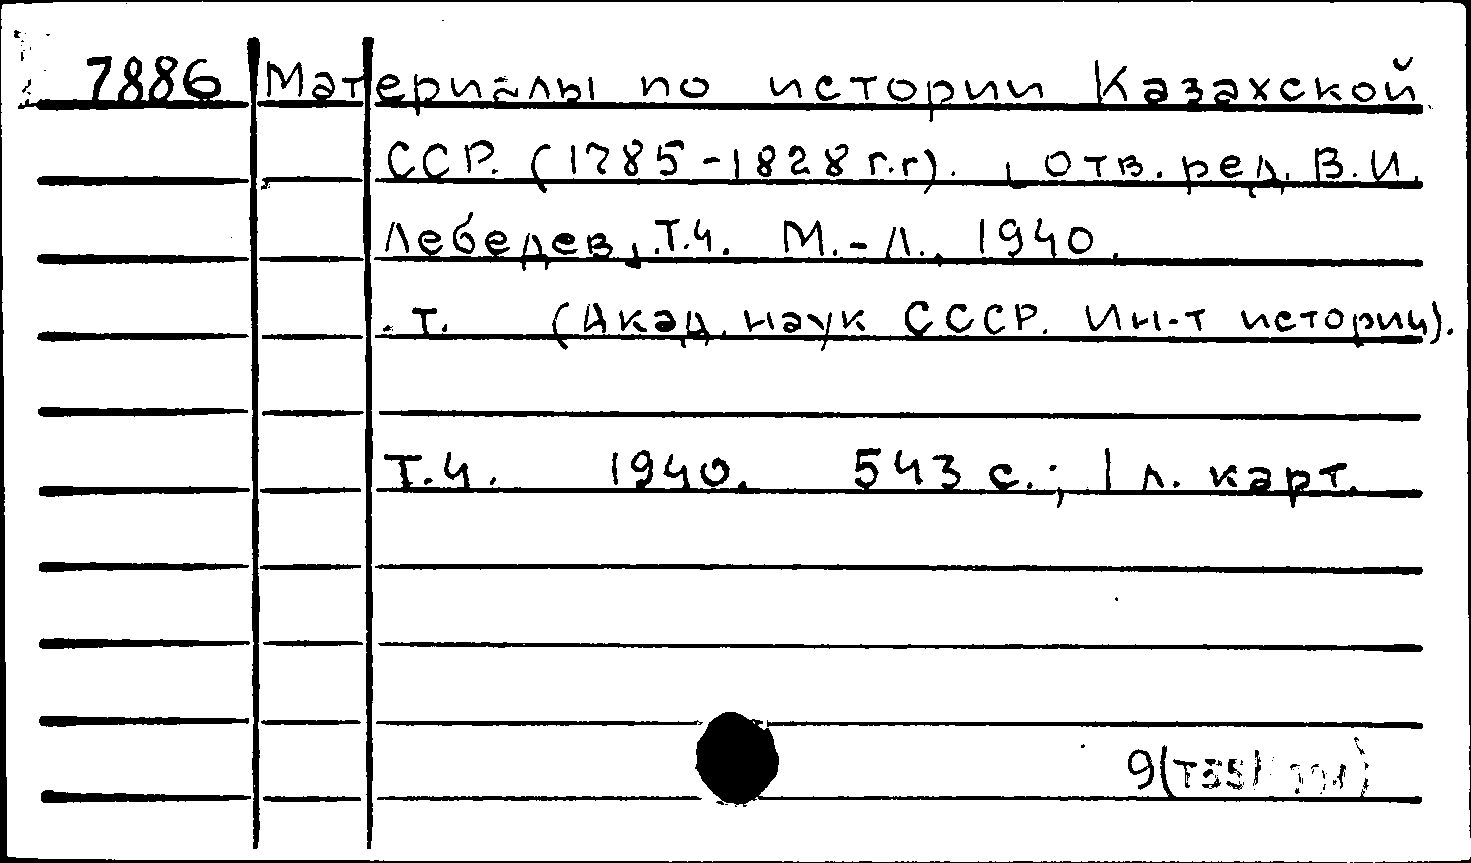 7886 Материалы по истории Казахской
ССР. (1785-1828 г.г). , отв. ред. В.И.
Лебедев, Т.4. М.-Л., 1940.
Т. (Акад. наук СССР. Ин-т истории).
Т.4. 1940. 543 с.; 1 л. карт.